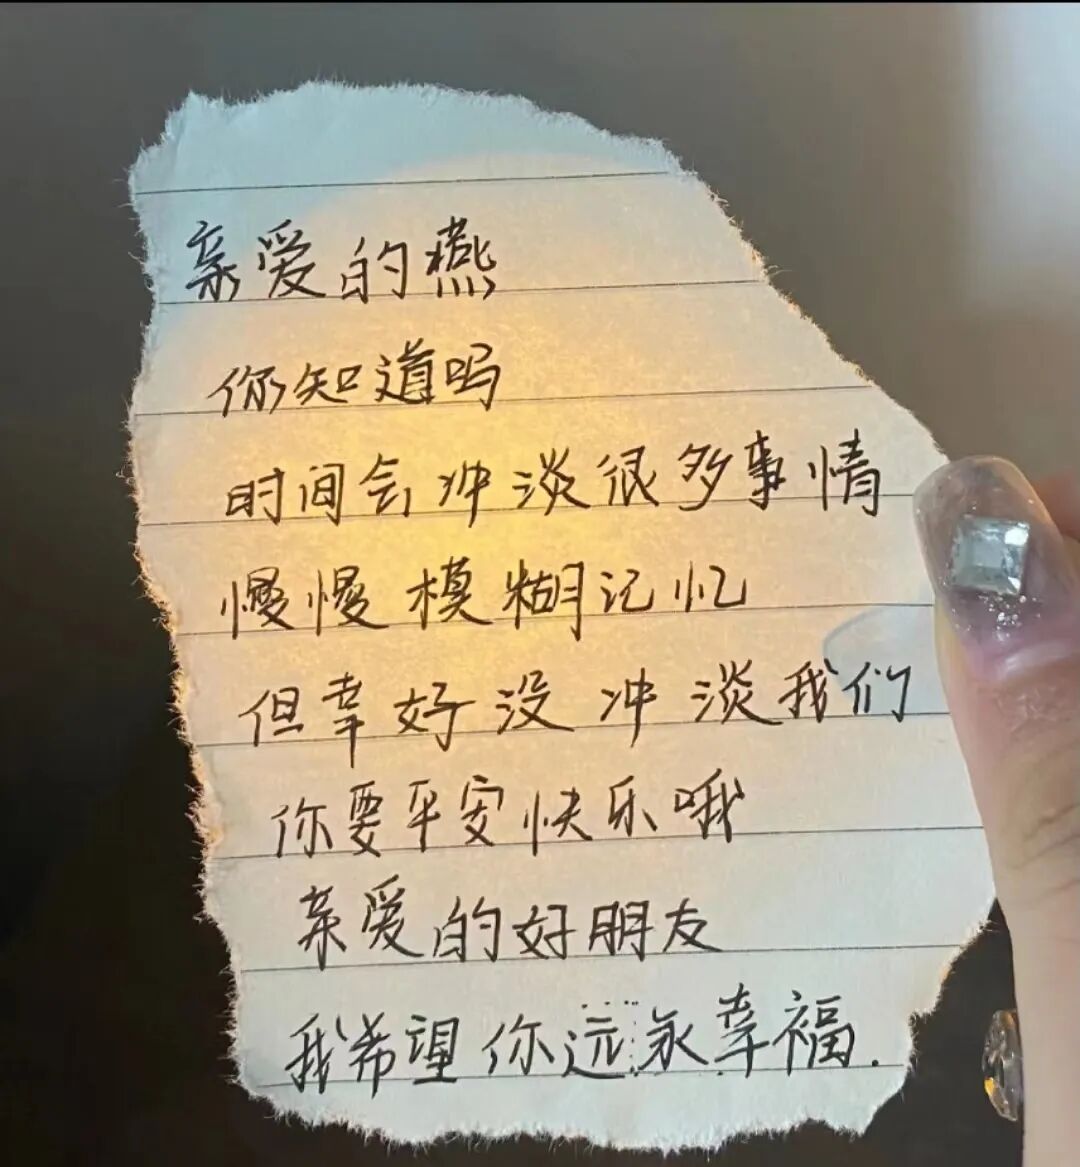 亲爱的燕
你知道吗
时间会冲淡很多事情
慢慢模糊记忆
但幸好没冲淡我们
你要平安快乐哦
亲爱的好朋友
我希望你远永幸福.